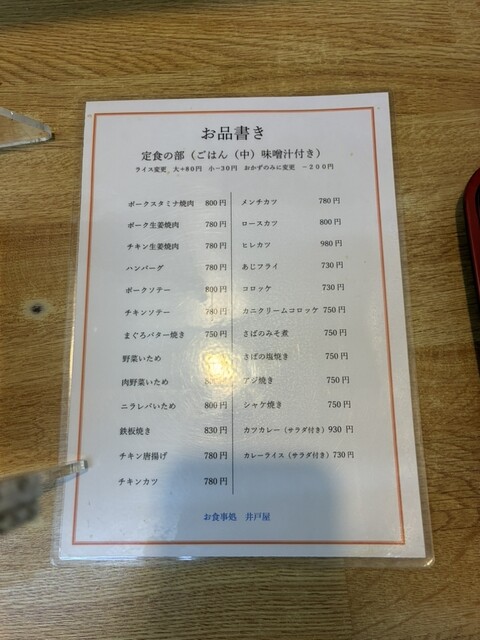 お品書き
定食の部（ごはん（中）味噌汁付き）
ライス変更 大+80円 小-30円 おかずのみに変更 -200円
ポークスタミナ焼肉 800円
ポーク生姜焼肉 780円
チキン生姜焼肉 780円
ハンバーグ 780円
ポークソテー 800円
チキンソテー 780円
まぐろバター焼き 750円
野菜いため
肉野菜いため
ニラレバいため 800円
鉄板焼き 830円
チキン唐揚げ 780円
チキンカツ 780円
メンチカツ 780円
ロースカツ 800円
ヒレカツ 980円
あじフライ 730円
コロッケ 730円
カニクリームコロッケ 750円
さばのみそ煮 750円
さばの塩焼き 750円
アジ焼き 750円
シャケ焼き 750円
カツカレー（サラダ付き）930円
カレーライス（サラダ付き）730円
お食事処 井戸屋